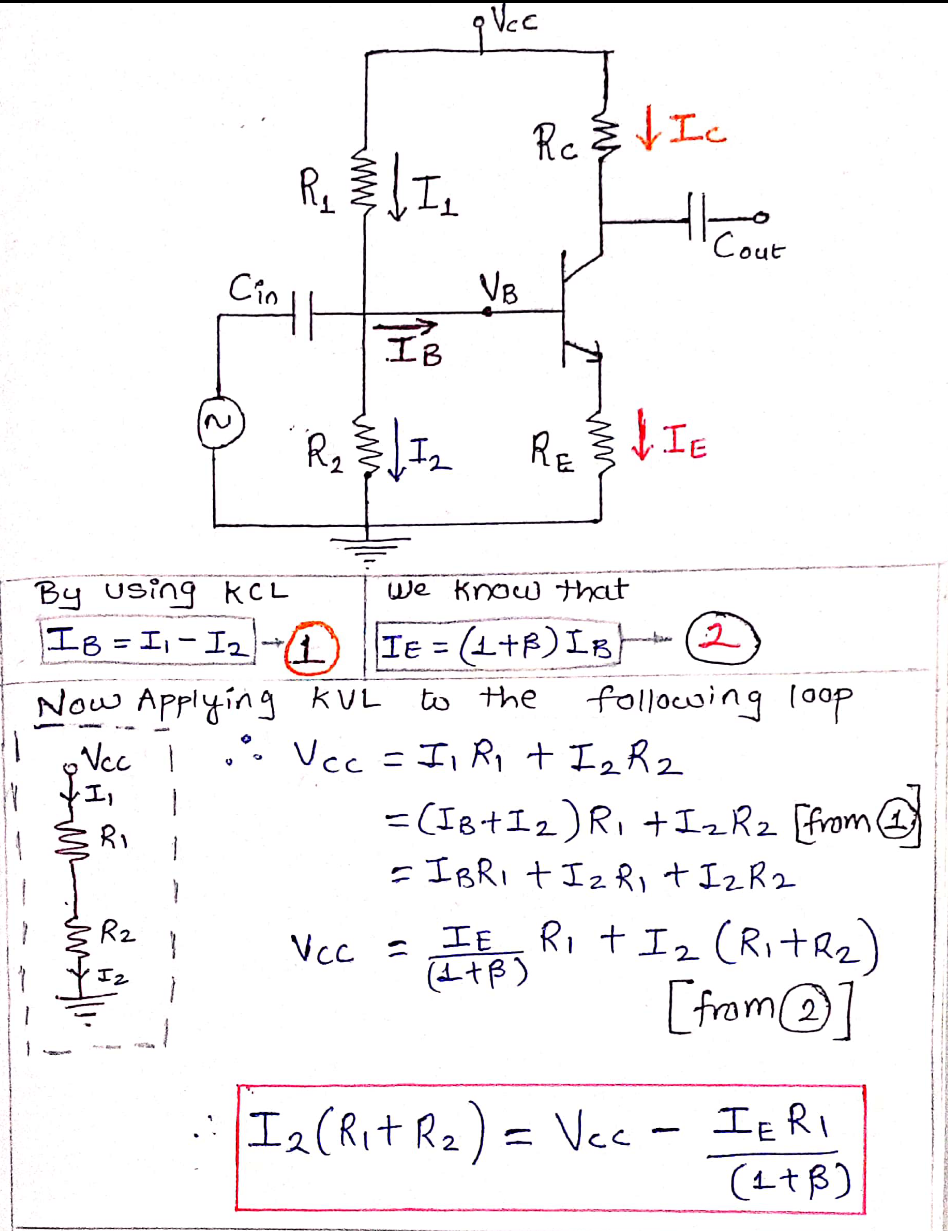 Vcc
Rc ↓ Ic
R₁ ↓ I₁
Cout
Cin
VB
IB
~
R₂ ↓ I₂
RE ↓ IE
By using KCL
IB = I₁ - I₂ → ①
We know that
IE = (1+β) IB → ②
Now Applying KVL to the following loop
Vcc
I₁
R₁
R₂
I₂
∴ Vcc = I₁ R₁ + I₂ R₂
= (IB + I₂) R₁ + I₂ R₂ [from ①]
= IBR₁ + I₂ R₁ + I₂ R₂
Vcc = IE/(1+β) R₁ + I₂ (R₁ + R₂)
[from ②]
∴ I₂(R₁ + R₂) = Vcc - IE R₁/(1+β)